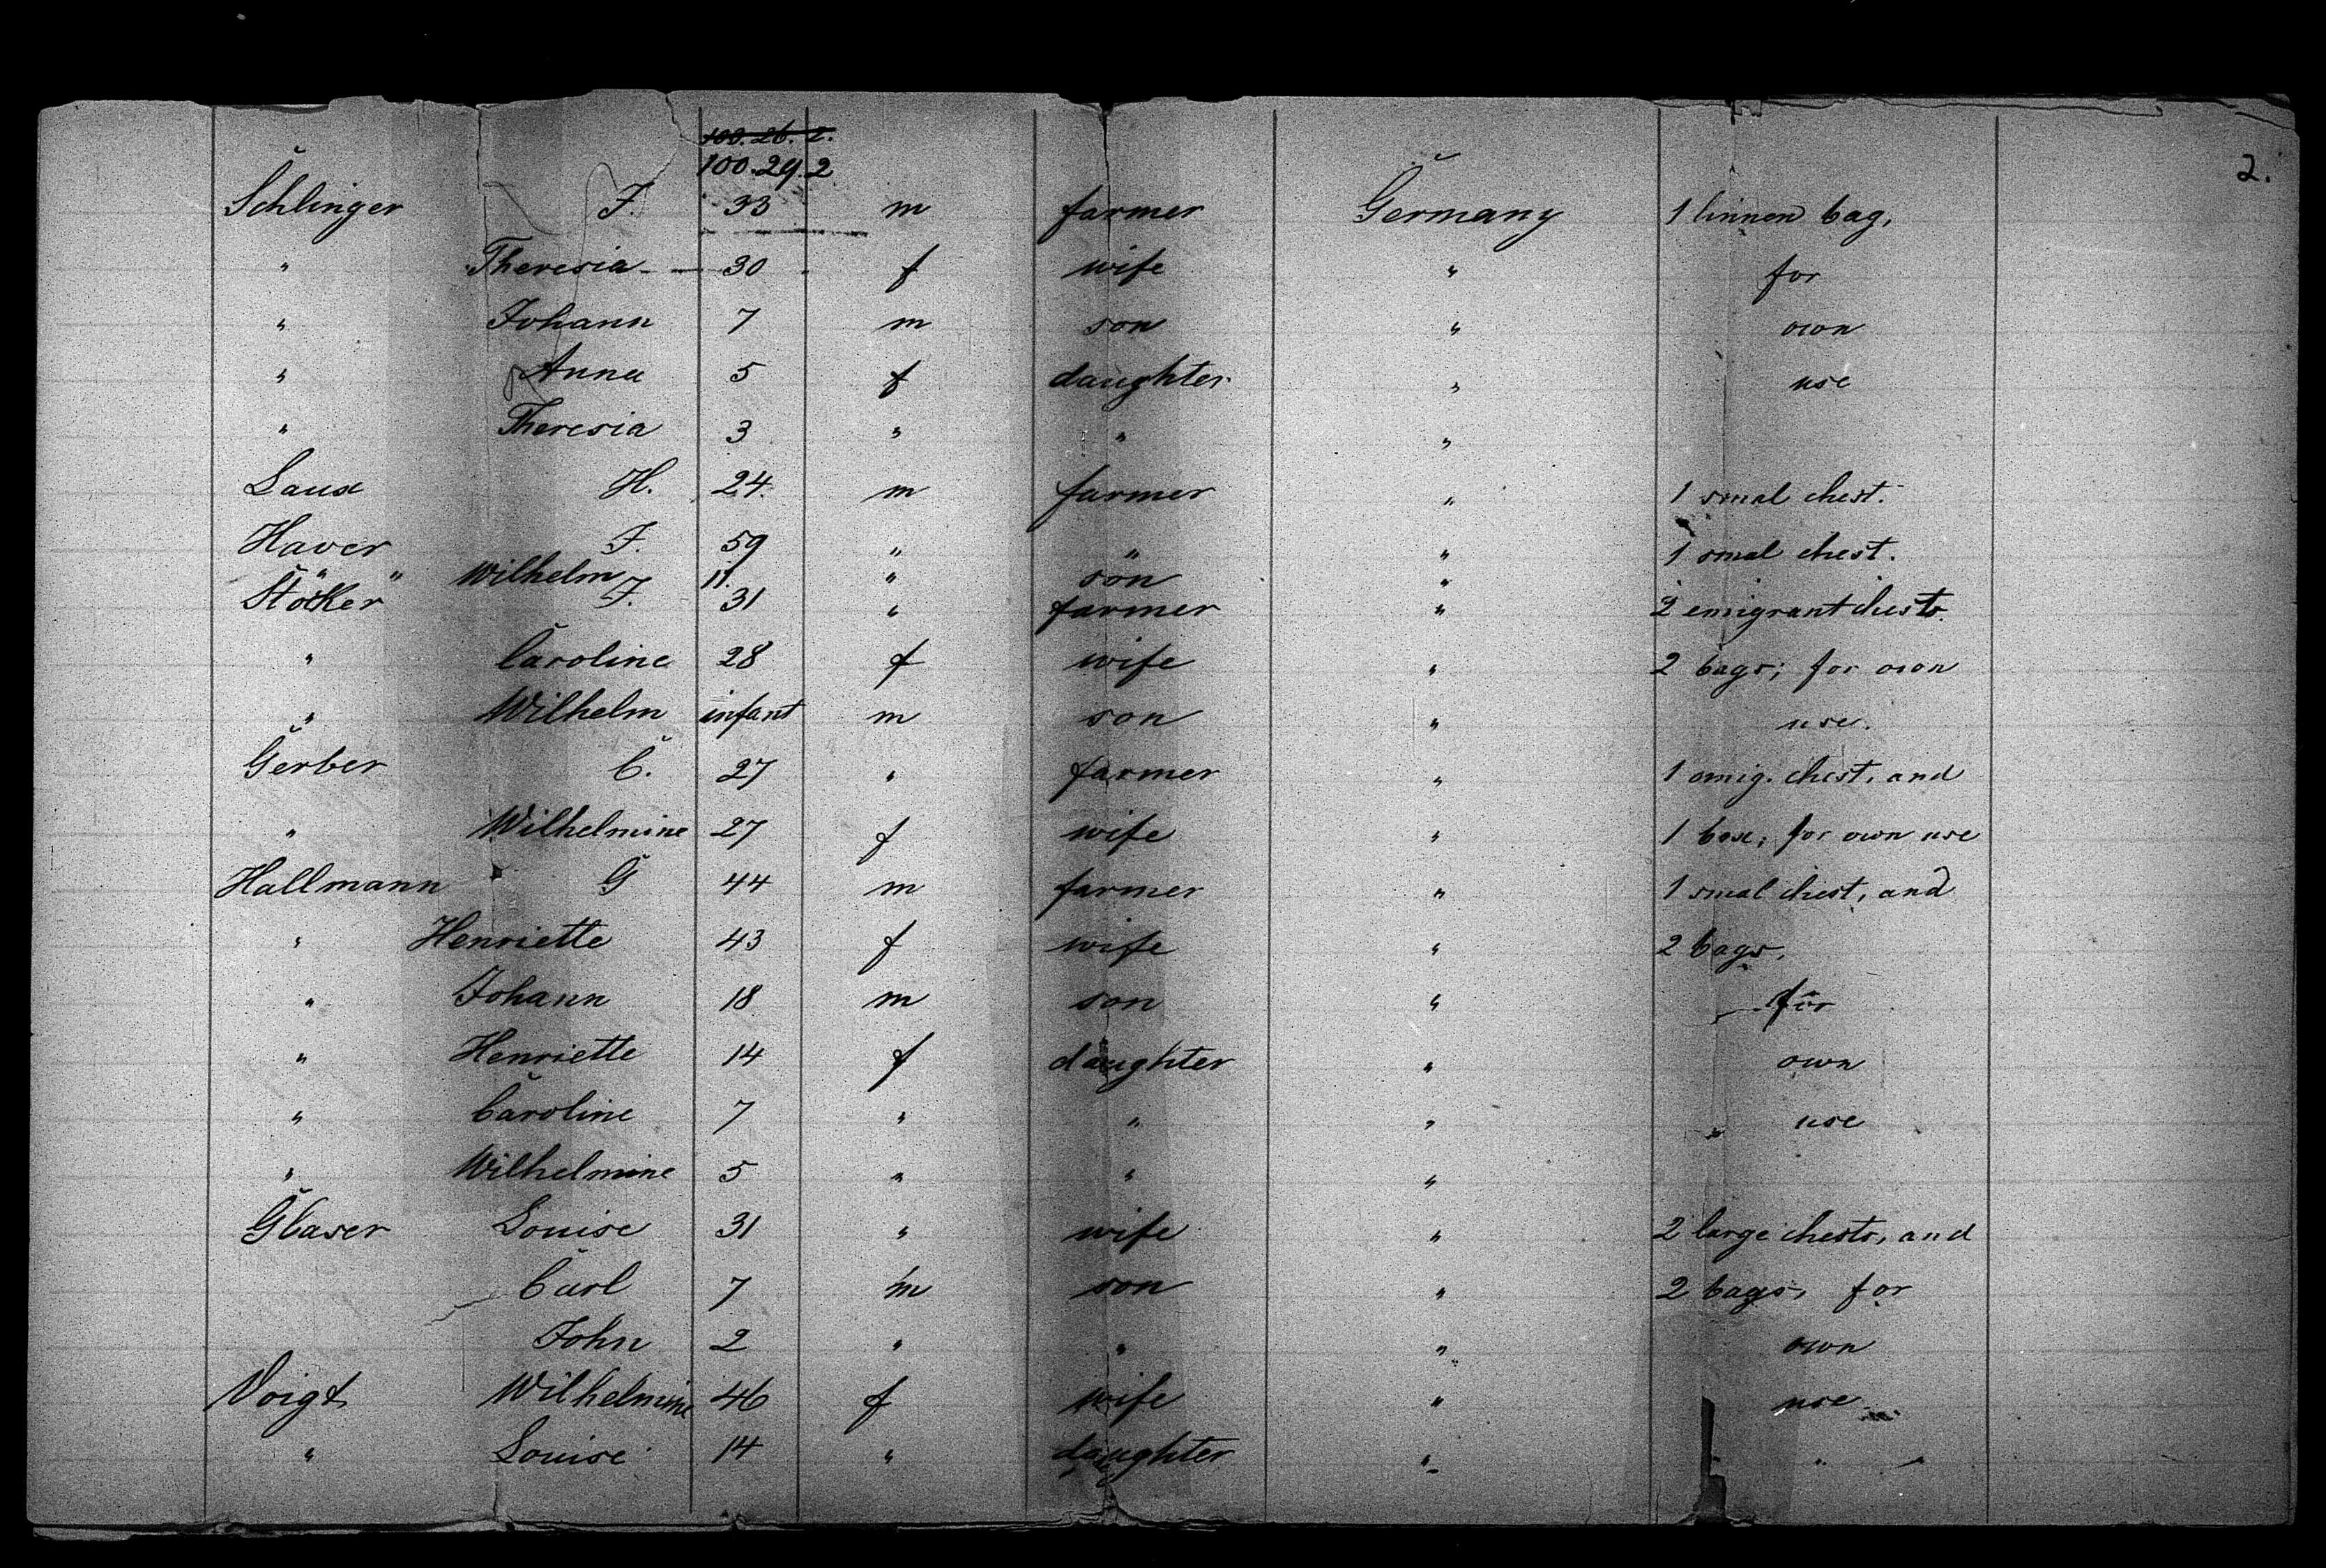 100. 26. 2.
100. 29. 2
2.
Schlinger J. 33 m farmer Germany 1 linnen bag,
" Theresia 30 f wife " for
" Johann 7 m son " own
" Anna 5 f daughter " use
" Theresia 3 " " "
Laux H. 24. m farmer " 1 smal chest.
Haver J. 59 " " " 1 smal chest.
" " Wilhelm 11. " son "
Stöcker J. 31 " farmer " 2 emigrant chests.
" Caroline 28 f wife " 2 bags; for own
" Wilhelm infant m son " use.
Gerber C. 27 " farmer " 1 emig. chest, and
" Wilhelmine 27 f wife " 1 box; for own use
Hallmann G 44 m farmer " 1 smal chest, and
" Henriette 43 f wife " 2 bags,
" Johann 18 m son " for
" Henriette 14 f daughter " own
" Caroline 7 " " " use
" Wilhelmine 5 " " "
Glaser Louise 31 " wife " 2 large chests, and
Carl 7 m son " 2 bags, for
John 2 " " " own
Voigt Wilhelmine 46 f wife " use
" Louise 14 " daughter " "